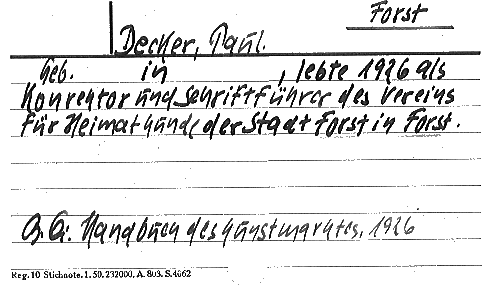 Forst
Decker, Paul.
Geb. in , lebte 1926 als
Konrektor und Schriftführer des Vereins
für Heimatkunde der Stadt Forst in Forst.
Q.: Handbuch des Kunstmarktes, 1926
Reg. 10 Stichnote. 1. 50. 232000, A. 803. S. 4062